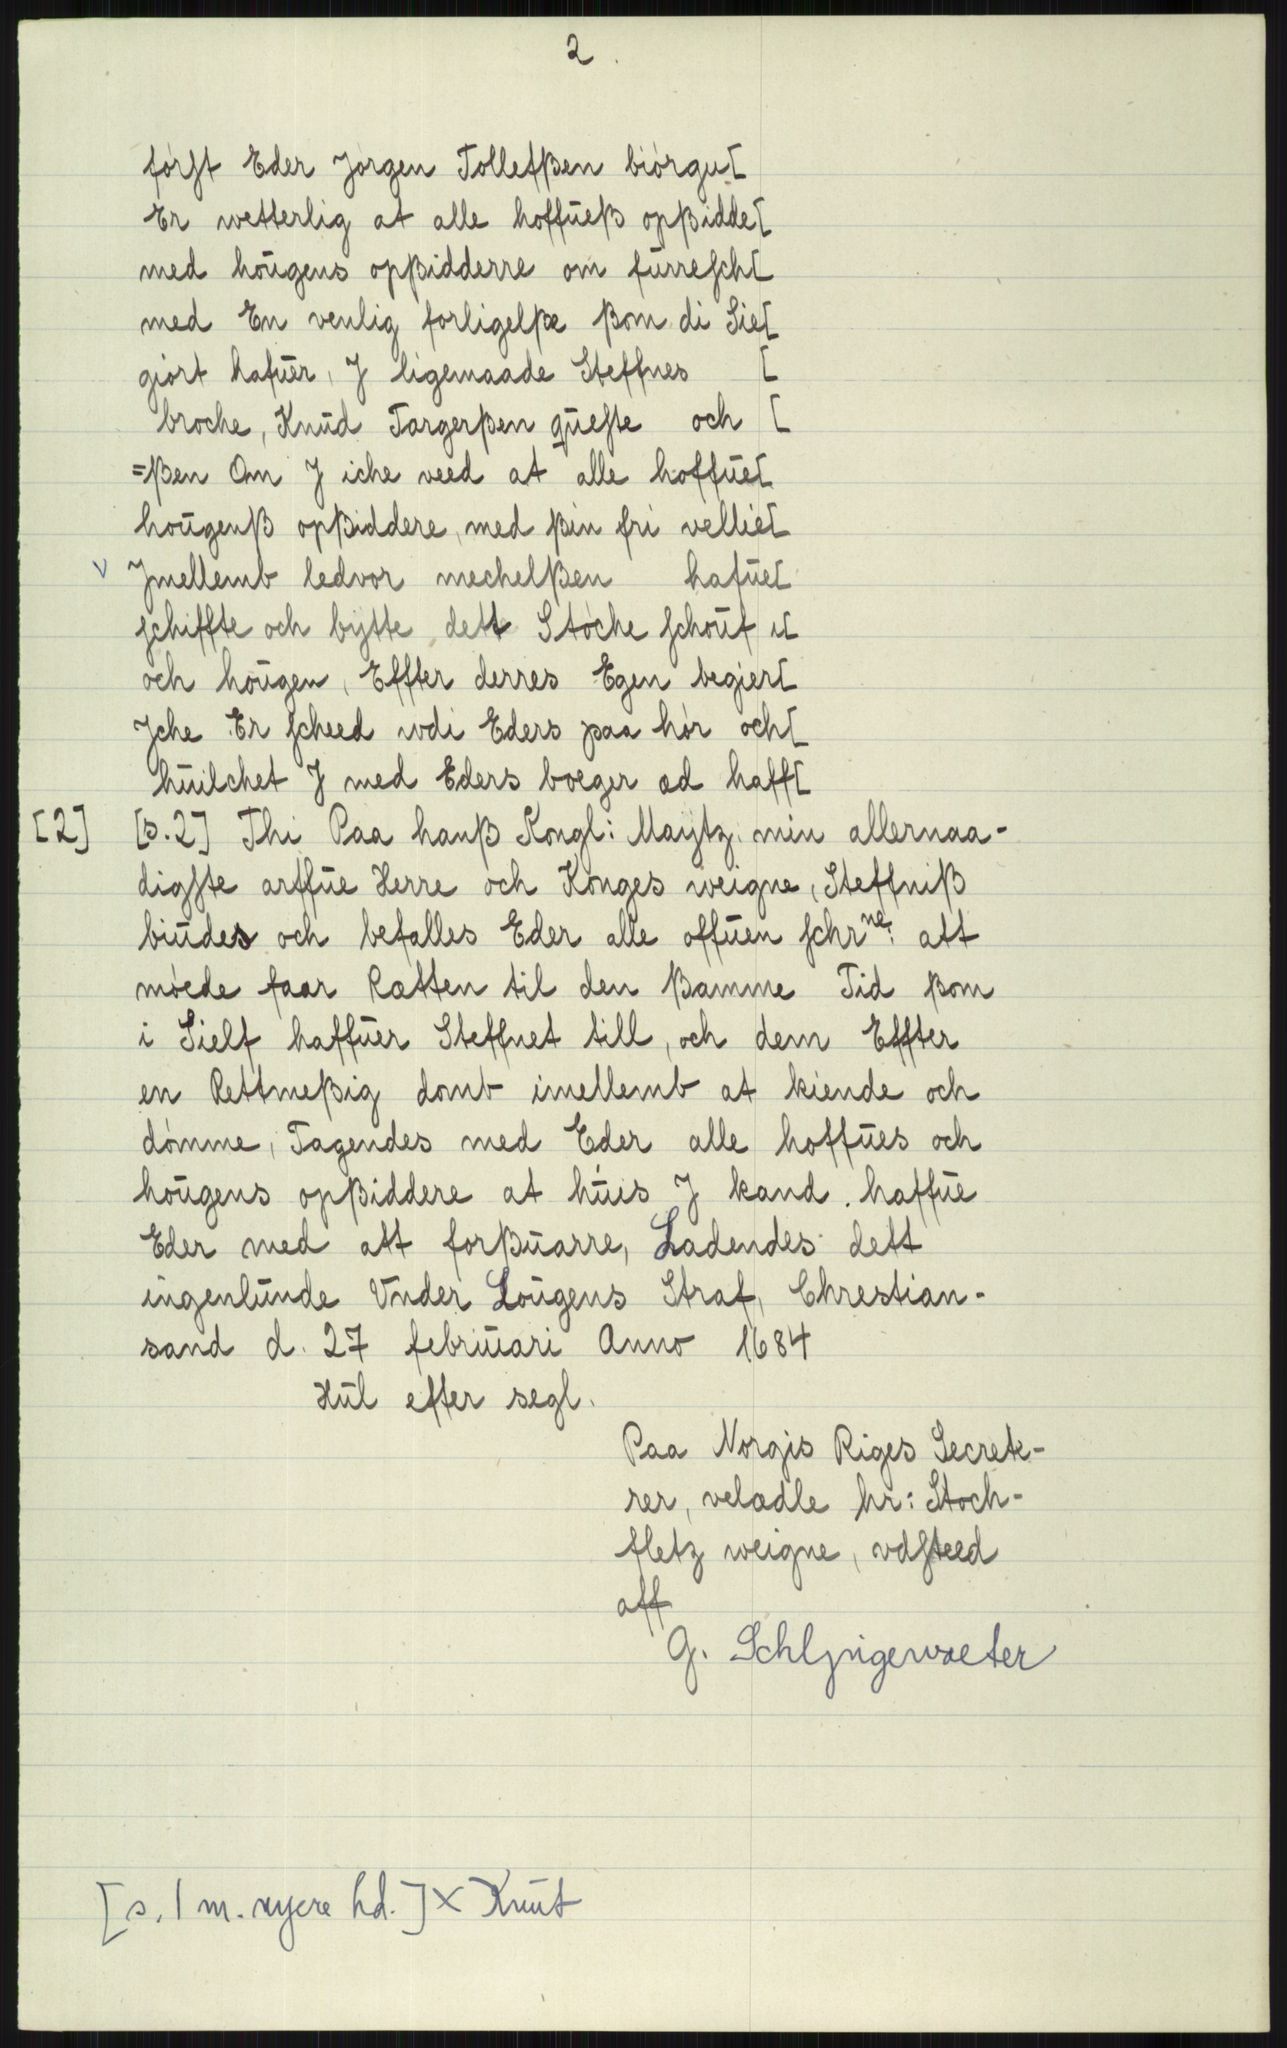 2.
først Eder Jørgen Tollefßen biørgu[
Er wetterlig at alle hoffūeß opßidde[
med hoūgens opßidderre om fūrresch[
med En venlig forligelße ßom di Sie[
giørt hafūer, J ligemaade Steffnes [
broche, Knūd Targerßen qūeste och [
=ßen Om J iche veed at alle hoffūe[
hoūgenß opßiddere, med ßin fri vellie[
v Jmellemb ledvor mechelßen hafūe[
schiffte och bytte dett Støche schoūf u[
och hoūgen, Effter derres Egen begier[
Jche Er scheed udi Eders paa hør och[
hūilchet J med Eders bøeger ad haff[
[2] [s.2] Thi Paa hanß Kongl: Maytz min allernaa-
digste arffūe Herre och Konges weigne, Steffniß
biūdes och befalles Eder alle offūen schrne: att
møede faar Rætten til den ßamme Tid ßom
i Sielf haffūer Steffnet till, och dem Effter
en Rettmeßig domb imellemb at kiende och
dømme, Tagendes med Eder alle hoffūes och
hoūgens opßiddere at hūis J kand. haffūe
Eder med att forßūarre, Ladendes dett
ingenlūnde Vnder Loūgens Straf, Chrestian-
sand d. 27 febrūari Anno 1684
Hūl efter segl.
Paa Norgis Riges Secrete-
rer, velædle hr: Stoch-
fletz weigne, vdsteed
aff
G. Schljngewaeter
[s. 1 m. nyere hd.] x Knūt